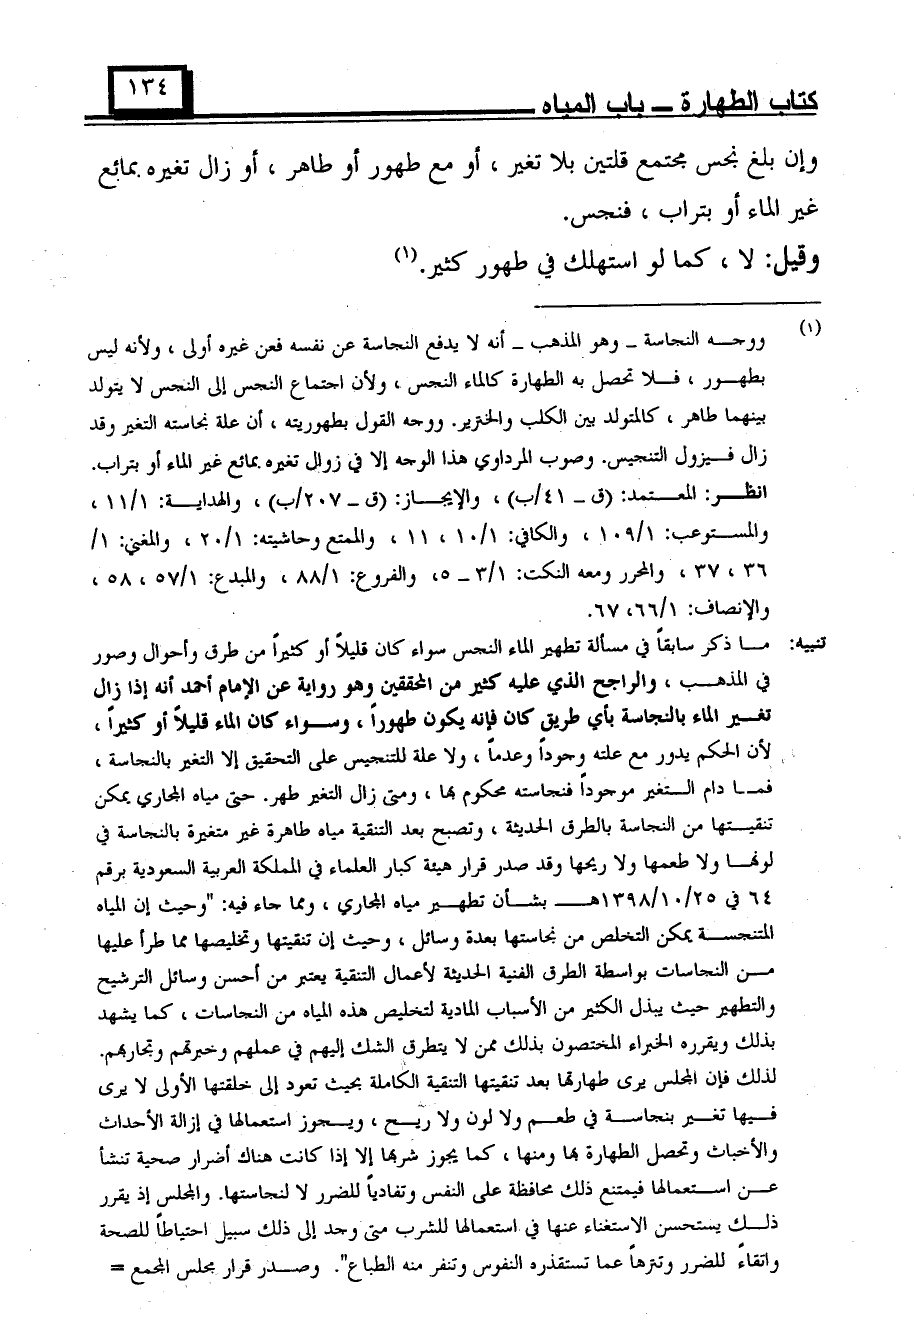 ١٣٤
كتاب الطهارة ــ باب المياه
وإن بلغ نجس مجتمع قلتين بلا تغير ، أو مع طهور أو طاهر ، أو زال تغيره بمائع
غير الماء أو بتراب ، فنجس.
وقيل: لا ، كما لو استهلك في طهور كثير.(١)
(١) ووجــه النجاسة ـ وهو المذهب ـ أنه لا يدفع النجاسة عن نفسه فعن غيره أولى ، ولأنه ليس
بطهــور ، فــلا تحصل به الطهارة كالماء النجس ، ولأن اجتماع النجس إلى النجس لا يتولد
بينهما طاهر ، كالمتولد بين الكلب والخنزير. ووجه القول بطهوريته ، أن علة نجاسته التغير وقد
زال فــيزول التنجيس. وصوب المرداوي هذا الوجه إلا في زوال تغيره بمائع غير الماء أو بتراب.
انظــر: المعتمد: (ق ـ ٤١/ب) ، والإيجــاز: (ق ـ ٢٠٧/ب) ، والهدايــة: ١١/١ ،
والمســتوعب: ١٠٩/١ ، والكافي: ١٠/١ ، ١١ ، والممتع وحاشيته: ٢٠/١ ، والمغني: ١/
٣٦ ، ٣٧ ، والمحرر ومعه النكت: ٣/١ ـ ٥، والفروع: ٨٨/١ ، والمبدع: ٥٧/١ ، ٥٨ ،
والإنصاف: ٦٦/١، ٦٧.
تنبيه: مــا ذكر سابقاً في مسألة تطهير الماء النجس سواء كان قليلاً أو كثيراً من طرق وأحوال وصور
في المذهــب ، والراجح الذي عليه كثير من المحققين وهو رواية عن الإمام أحمد أنه إذا زال
تغــير الماء بالنجاسة بأي طريق كان فإنه يكون طهوراً ، وســواء كان الماء قليلاً أو كثيراً ،
لأن الحكم يدور مع علته وجوداً وعدماً ، ولا علة للتنجيس على التحقيق إلا التغير بالنجاسة ،
فمــا دام الــتغير موجوداً فنجاسته محكوم بها ، ومتى زال التغير طهر. حتى مياه المجاري يمكن
تنقيــتها من النجاسة بالطرق الحديثة ، وتصبح بعد التنقية مياه طاهرة غير متغيرة بالنجاسة في
لونهــا ولا طعمها ولا ريحها وقد صدر قرار هيئة كبار العلماء في المملكة العربية السعودية برقم
٦٤ في ١٣٩٨/١٠/٢٥هــ بشــأن تطهــير مياه المجاري ، ومما جاء فيه: "وحيث إن المياه
المتنجســة يمكن التخلص من نجاستها بعدة وسائل ، وحيث إن تنقيتها وتخليصها مما طرأ عليها
مــن النجاسات بواسطة الطرق الفنية الحديثة لأعمال التنقية يعتبر من أحسن وسائل الترشيح
والتطهير حيث يبذل الكثير من الأسباب المادية لتخليص هذه المياه من النجاسات ، كما يشهد
بذلك ويقرره الخبراء المختصون بذلك ممن لا يتطرق الشك إليهم في عملهم وخبرتهم وتجاربهم.
لذلك فإن المجلس يرى طهارتها بعد تنقيتها التنقية الكاملة بحيث تعود إلى خلقتها الأولى لا يرى
فــيها تغير بنجاسة في طعــم ولا لون ولا ريــح ، ويــجوز استعمالها في إزالة الأحداث
والأخباث وتحصل الطهارة بها ومنها ، كما يجوز شربها إلا إذا كانت هناك أضرار صحية تنشأ
عــن استــعمالها فيمتنع ذلك محافظة على النفس وتفادياً للضرر لا لنجاستها. والمجلس إذ يقرر
ذلــك يستحسن الاستغناء عنها في استعمالها للشرب متى وجد إلى ذلك سبيل احتياطاً للصحة
واتقاءً للضرر وتنزهاً عما تستقذره النفوس وتنفر منه الطباع". وصــدر قرار مجلس المجمع =